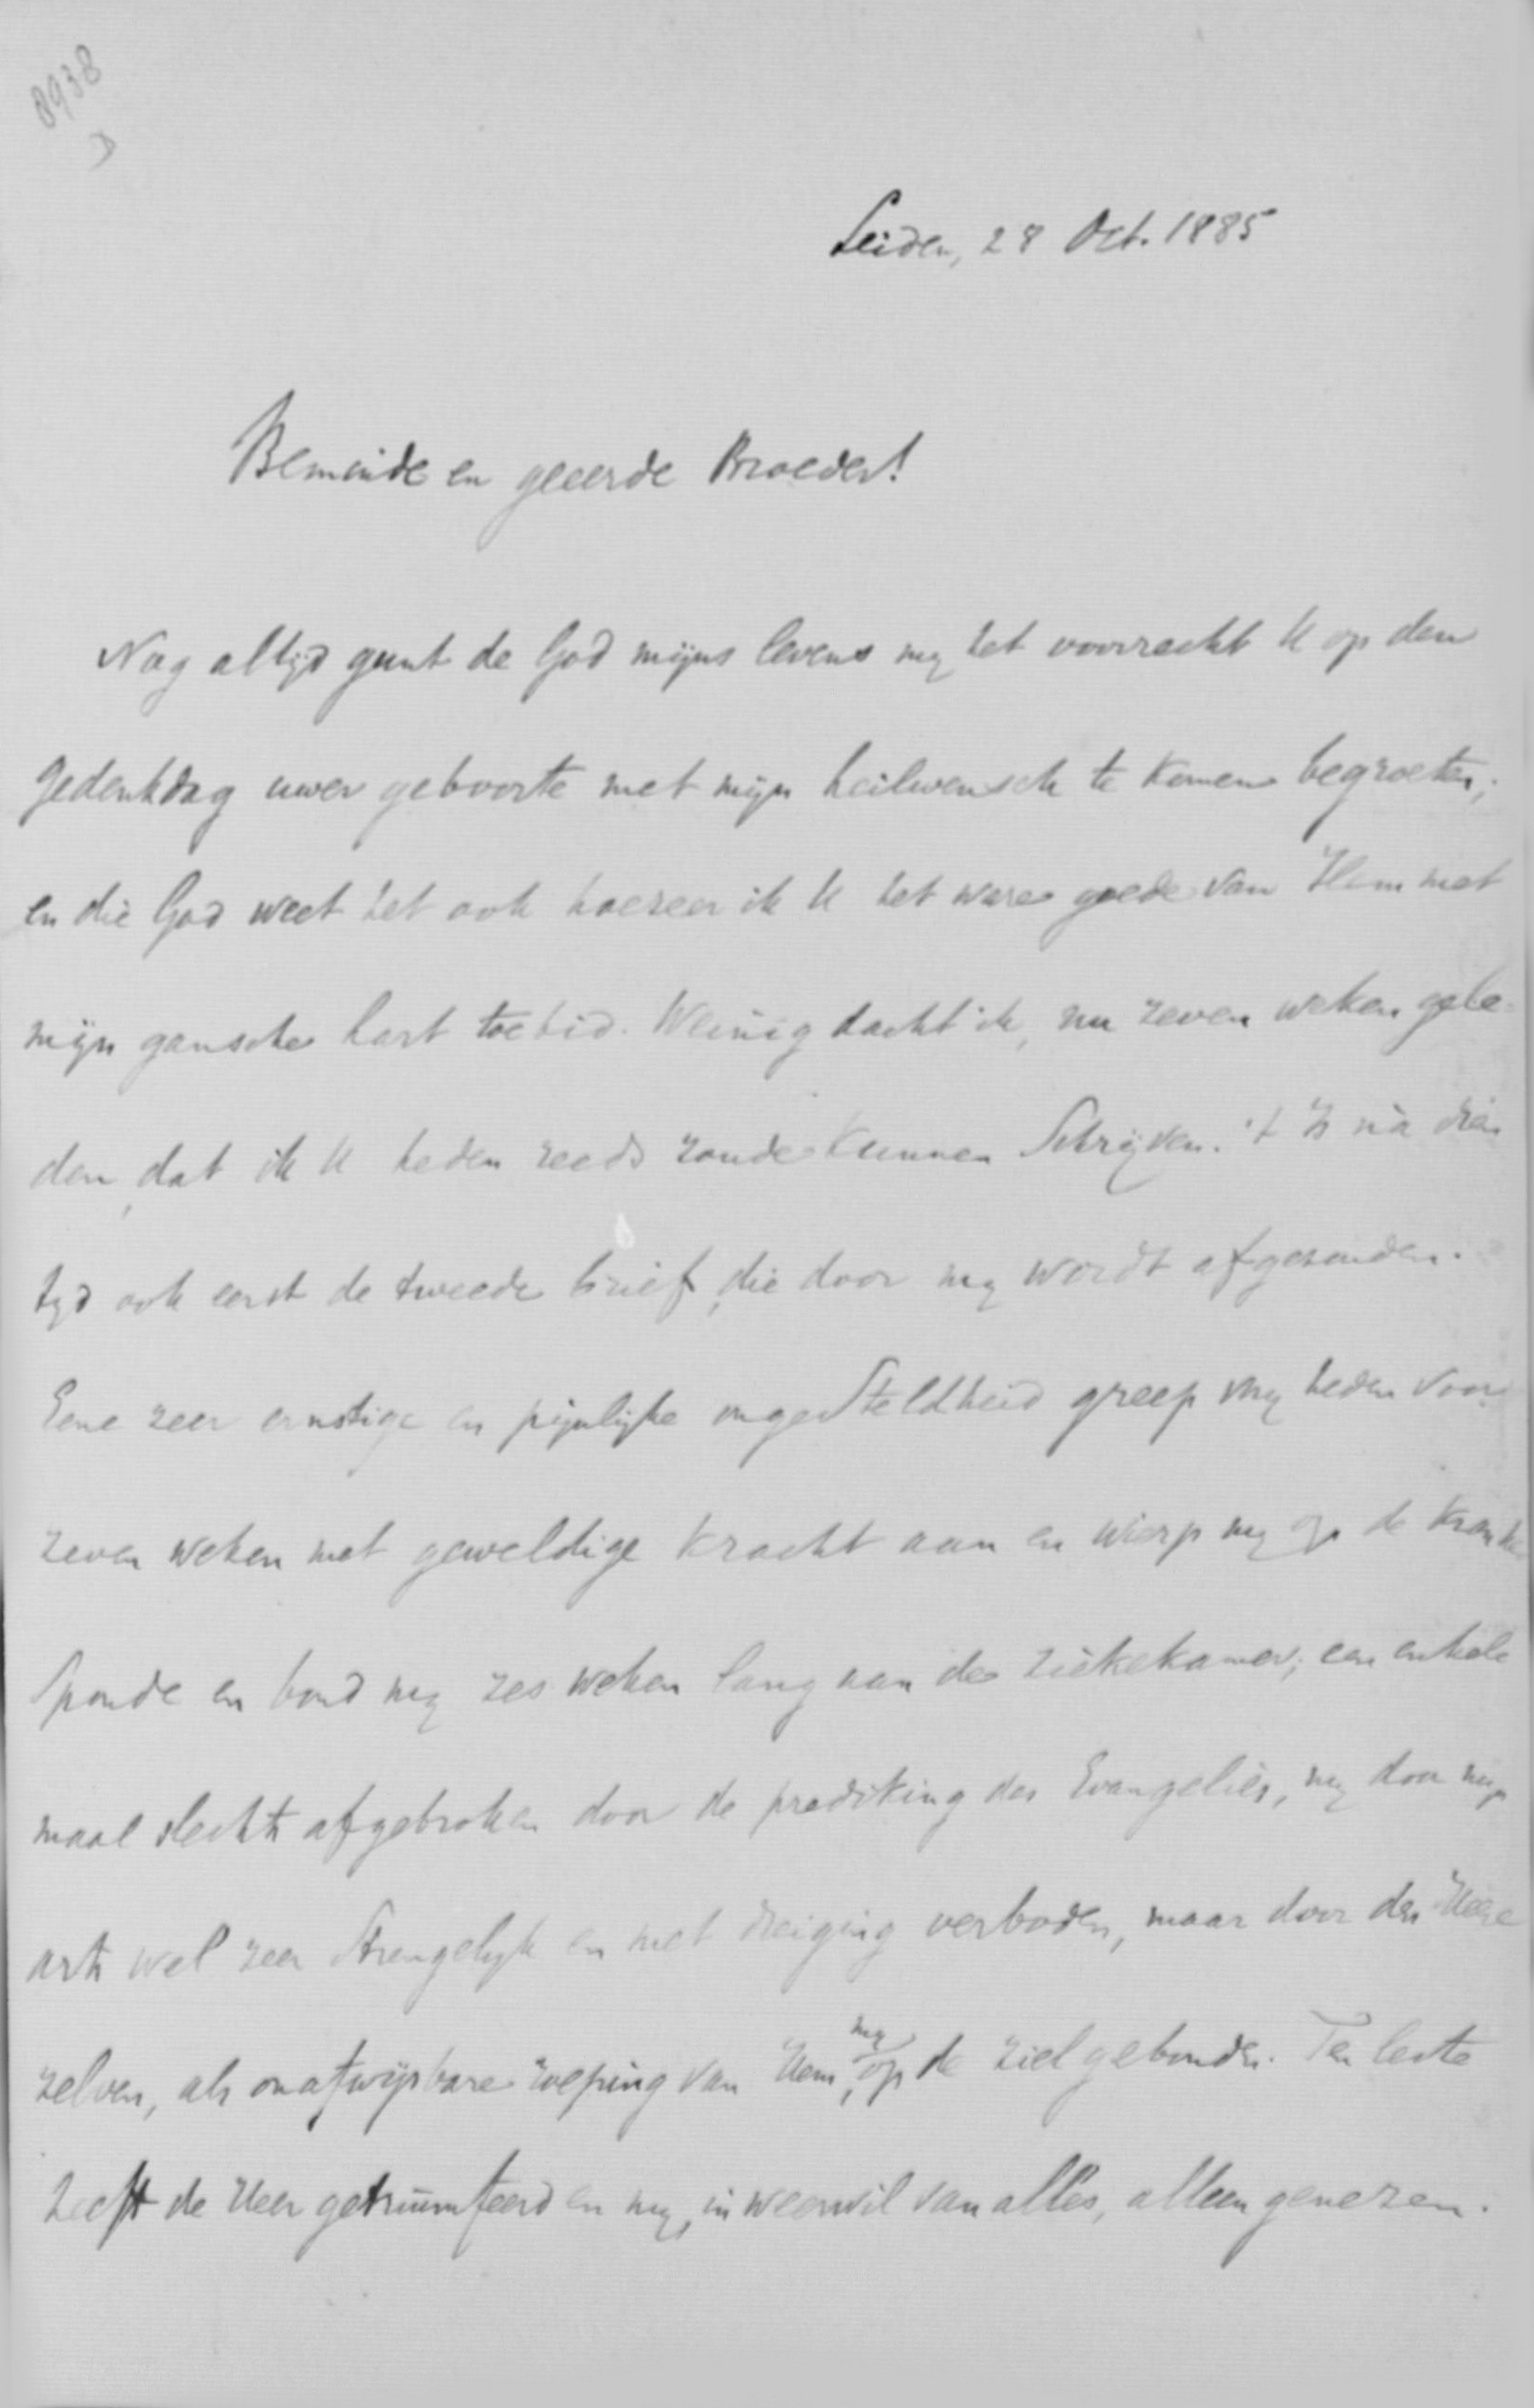 8938
D
Leiden, 28 Oct. 1885
Beminde en geeerde Broeder!
Nog altijd gunt de God mijns levens my het voorrecht U op den
gedenkdag uwer geboorte met mijn heilwensch te komen begroeten;
en die God weet het ook hoezeer ik U het ware goede van Hem met
mijn gansche hart toebid. Weinig dacht ik, nu zeven weken gele-
den, dat ik U heden reeds zoude kunnen schrijven. 't Is nà dien
tyd ook eerst de tweede brief, die door my wordt afgezonden.
Eene zeer ernstige en pijnlijke ongesteldheid greep my heden voor
zeven weken met geweldige kracht aan en wierp my op de kranke
sponde en bond my zes weken lang aan de ziekekamer; een enkele
maal slechts afgebroken door de prediking des Evangelies, my door mijn
arts wel zeer strengelyk en met dreiging verboden, maar door den Heere
zelven, als onafwijsbare roeping van Hem, my op de ziel gebonden. Ten leste
heeft de Heer getriumfeerd en my, in weerwil van alles, alleen genezen.